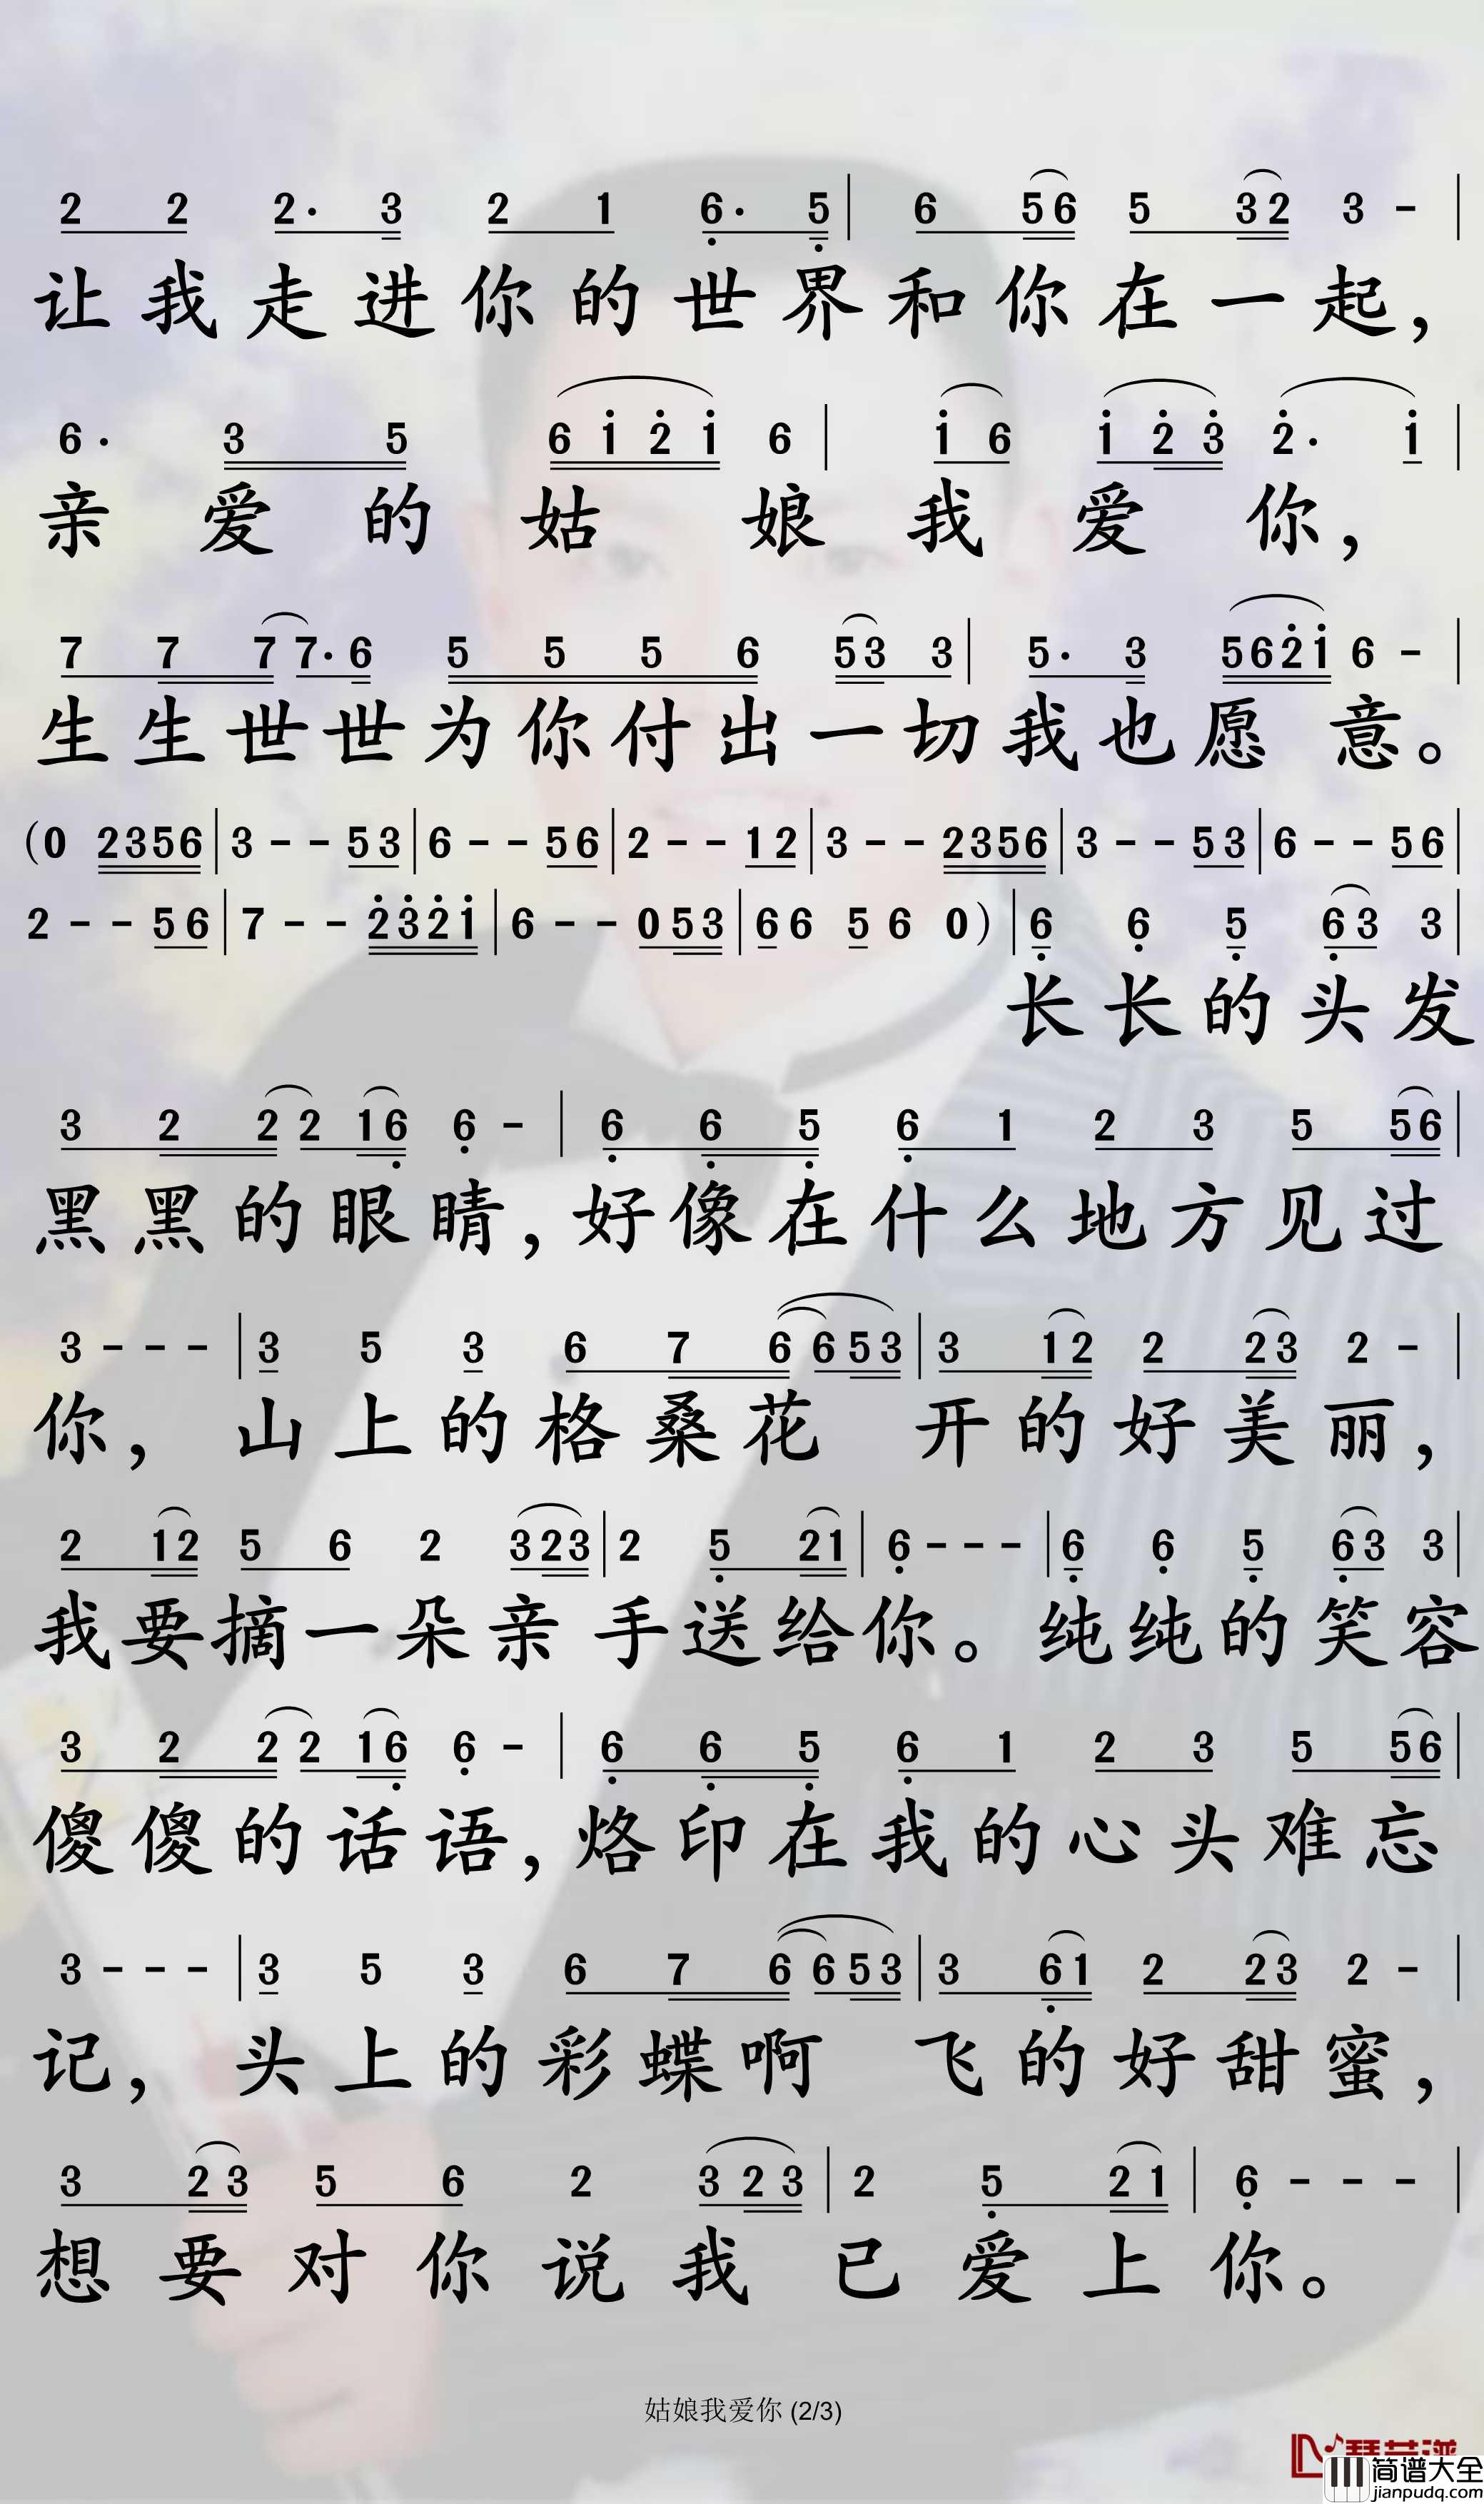 2 2 2· 3 2 1 6· 5 | 6 56 5 32 3 - |
让我走进你的世界和你在一起，
6· 3 5 6121 6 | 16 123 2· 1 |
亲爱的姑娘我爱你，
7 7 77·6 5 5 5 6 53 3 | 5· 3 5621 6 - |
生生世世为你付出一切我也愿意。
（0 2356 | 3 - - 53 | 6 - - 56 | 2 - - 12 | 3 - - 2356 | 3 - - 53 | 6 - - 56 |
2 - - 56 | 7 - - 2321 | 6 - - 053 | 66 56 0） | 6 6 5 63 3 |
长长的头发
3 2 22 16 6 - | 6 6 5 6 1 2 3 5 56 |
黑黑的眼睛，好像在什么地方见过
3 - - - | 3 5 3 6 7 6653 | 3 12 2 23 2 - |
你，山上的格桑花开的好美丽，
2 12 5 6 2 323 | 2 5 21 | 6 - - - | 6 6 5 63 3 |
我要摘一朵亲手送给你。纯纯的笑容
3 2 22 16 6 - | 6 6 5 6 1 2 3 5 56 |
傻傻的话语，烙印在我的心头难忘
3 - - - | 3 5 3 6 7 6653 | 3 61 2 23 2 - |
记，头上的彩蝶啊飞的好甜蜜，
3 23 5 6 2 323 | 2 5 21 | 6 - - - |
想要对你说我已爱上你。
姑娘我爱你 (2/3)
简谱大全
jianpudq.com